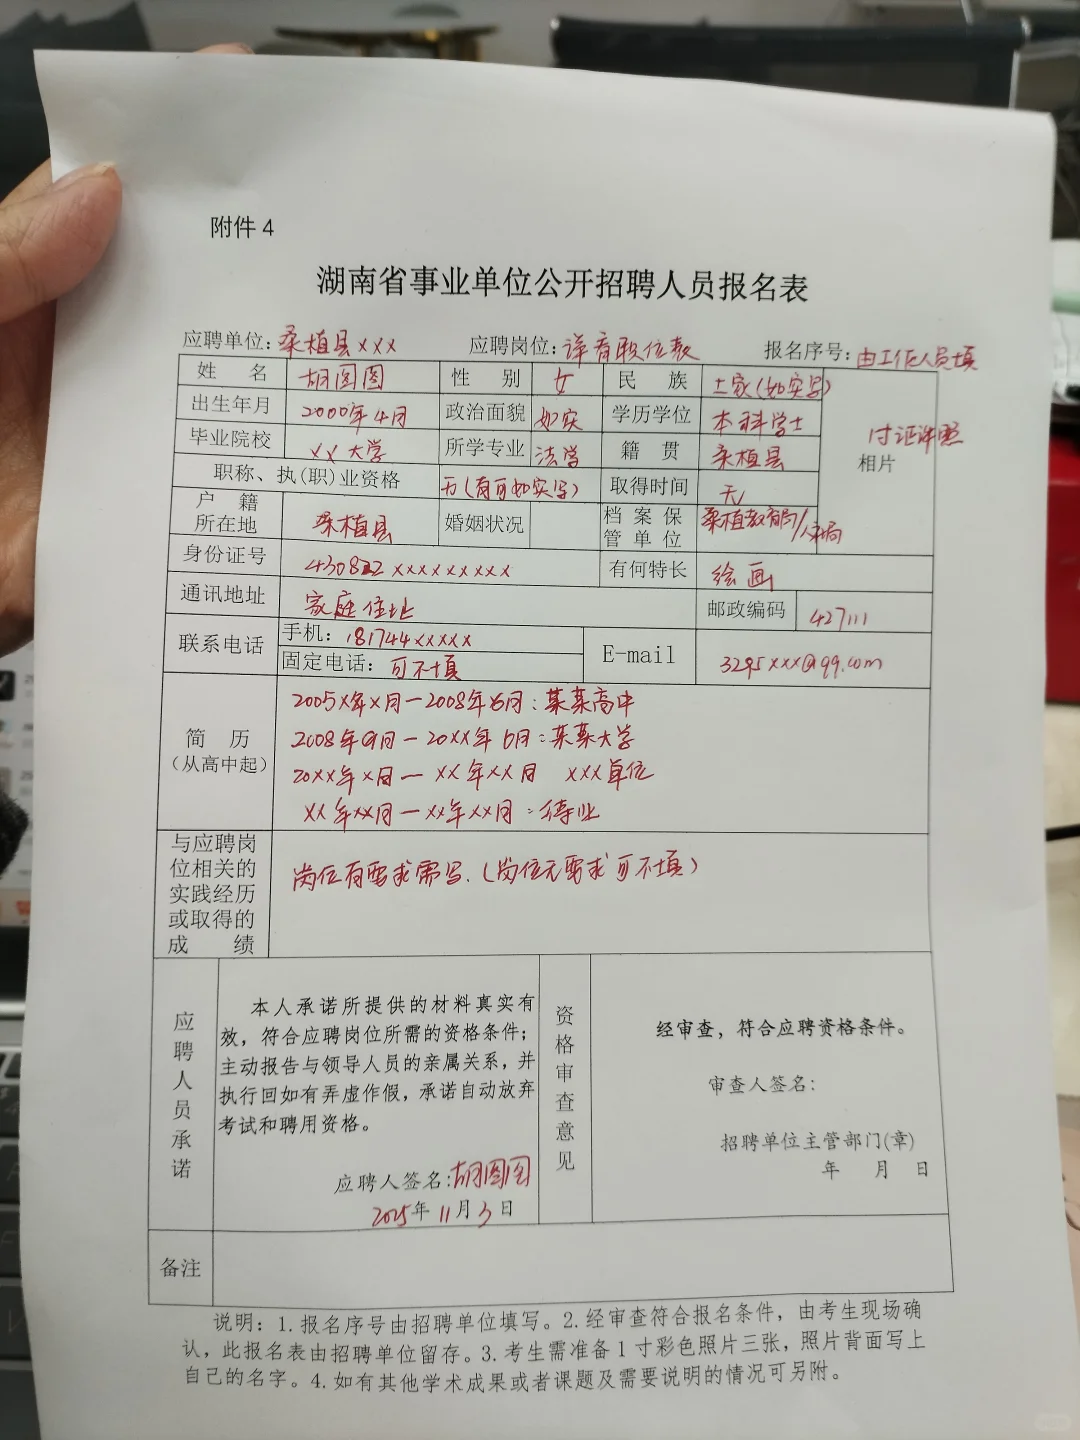 附件 4
湖南省事业单位公开招聘人员报名表
应聘单位：桑植县xxx 应聘岗位：详看职位表 报名序号：由工作人员填
姓 名 胡图图 性 别 女 民 族 土家(如实写)
出生年月 2000年4月 政治面貌 如实 学历学位 本科学士
毕业院校 xx大学 所学专业 法学 籍 贯 桑植县
寸证件照
相片
职称、执(职)业资格 无(有可如实写) 取得时间 无
户 籍
所在地 桑植县 婚姻状况
档 案 保
管 单 位 桑植教育局/人社局
身份证号 430822xxxxxxxxx 有何特长 绘画
通讯地址 家庭住址 邮政编码 427111
联系电话 手机：181744xxxxx
固定电话：可不填
E-mail 3295xxx@qq.com
简 历
（从高中起）
2005x年x月—2008年6月：某某高中
2008年9月—20xx年6月：某某大学
20xx年x月—xx年xx月 xxx单位
xx年xx月—xx年xx月：待业
与应聘岗
位相关的
实践经历
或取得的
成 绩
岗位有要求需写.(岗位无要求可不填)
应聘人员承诺
本人承诺所提供的材料真实有
效，符合应聘岗位所需的资格条件；
主动报告与领导人员的亲属关系，并
执行回如有弄虚作假，承诺自动放弃
考试和聘用资格。
应聘人签名：胡图图
2025年 11月 3日
资格审查意见
经审查，符合应聘资格条件。
审查人签名：
招聘单位主管部门(章)
年 月 日
备注
说明：1.报名序号由招聘单位填写。2.经审查符合报名条件，由考生现场确
认，此报名表由招聘单位留存。3.考生需准备1寸彩色照片三张，照片背面写上
自己的名字。4.如有其他学术成果或者课题及需要说明的情况可另附。